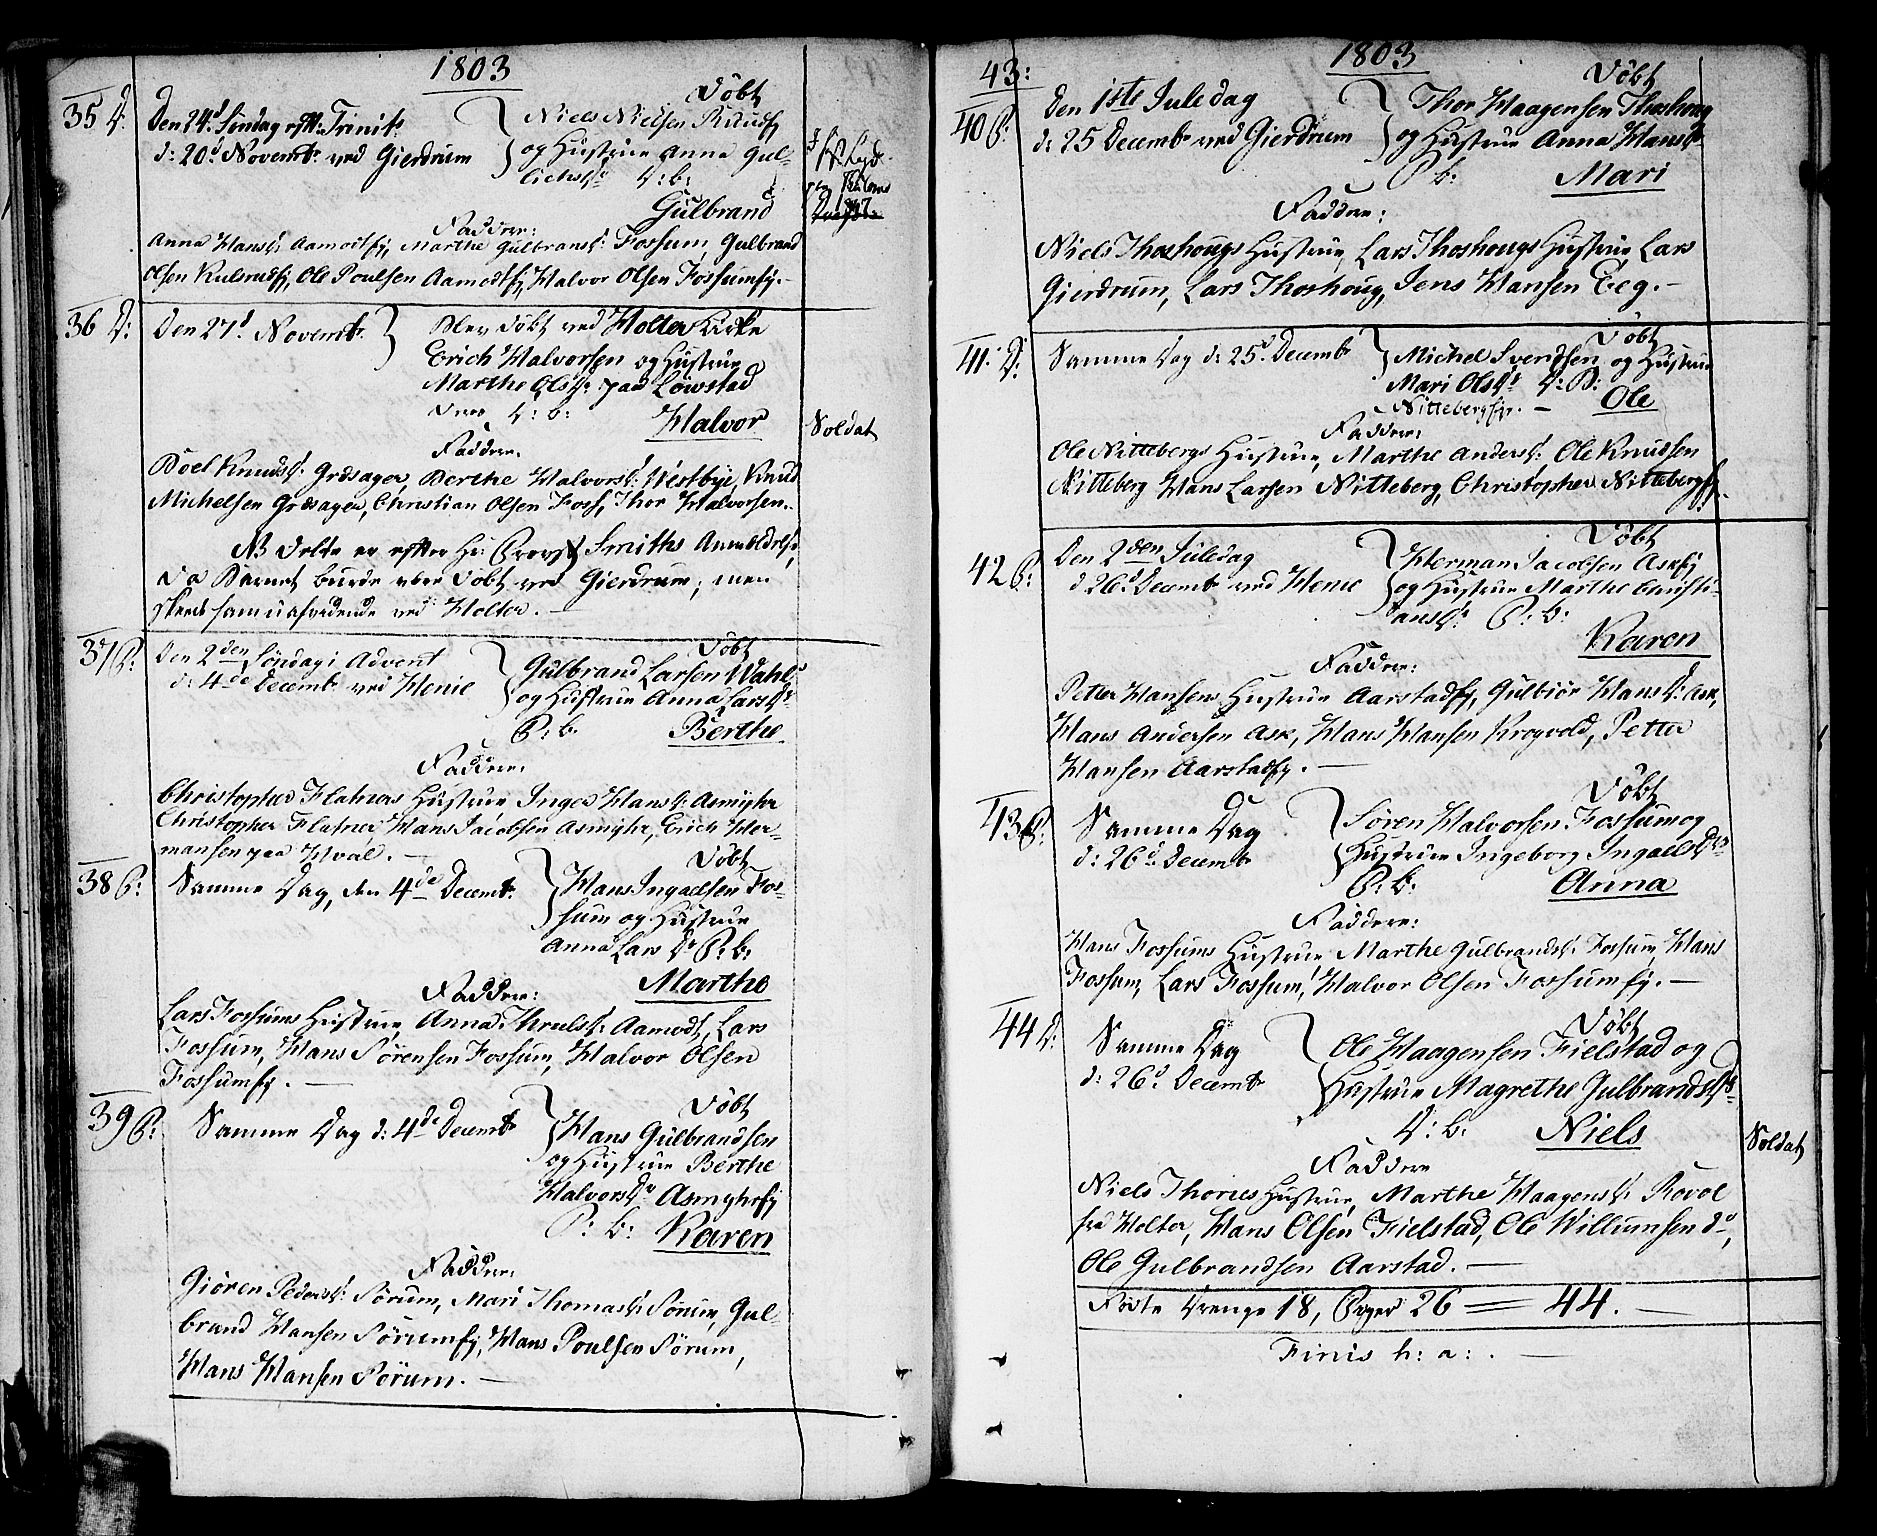 1803
35 D: Den 24d Søndag efter Trinit:
d: 20d Novembr ved Gierdrum
Døbt
Niels Nielsen Ruud
og Hustrue Anna Gul-
lichsdr D: b:
Gulbrand
Faddere:
Anna Hansd: Aamodtfj, Marthe Gulbransd: Fossum, Gulbrand
Olsen Kulsrudfj, Ole Poulsen Aamodtfj, Halvor Olsen Fossumfj.
36 D: Den 27d Novembr
Blev døbt ved Holter Kirke
Erich Halvorsen og Hustrue
Marthe Olsdr paa Løwstad
D: b:
Halvor
Soldat
Faddere:
Boel Knudsd: Græsager, Berthe Halvorsd: Westbye, Knud
Michelsen Græsager, Christian Olsen Foss, Thor Halvorsen.
NB Dette er efter Hr: Provst Smiths Anmeldelse,
da Barnet burde være døbt ved Gierdrum; men
skeede ved Holter.
37 P: Den 2den Søndag i Advent
d: 4de Decembr ved Henie
Døbt
Gulbrand Larsen Wahl
og Hustrue Anna Larsdr
P: b.
Berthe
Faddere:
Christopher Flatners Hustrue Inger Hansd: Asmyhr
Christopher Flatner, Hans Jacobsen Asmyhr, Erich Her-
mansen paa Hval.
38 P: Samme Dag, den 4de Decembr
Døbt
Hans Ingaelsen Fos-
sum og Hustrue
Anna Lars Dr P: b:
Marthe
Faddere:
Lars Fossums Hustrue, Anna Thruelsd: Aamodt, Lars
Fossum, Hans Sørensen Fossum, Halvor Olsen
Fossumfj.
39 P: Samme Dag d: 4de Decembr
Døbt
Hans Gulbrandsen
og Hustrue Berthe
Halvorsdr Asmyhrfj
P: b:
Karen
Faddere:
Giøren Pedersd: Sørum, Mari Thomasd: Sørum, Gul-
brand Hansen Sørumfj, Hans Poulsen Sørum,
Hans Hansen Sørum.
43:
1803
40 P: Den 1ste Juledag
d: 25 Decembr ved Gierdrum
Døbt
Thor Haagensen Thoshoug
og Hustrue Anna Hansdr
P b:
Mari
Faddere:
Niels Thoshougs Hustrue, Lars Thoshougs Hustrue, Lars
Gierdrum, Lars Thoshoug, Jens Hansen Eeg.
41. D: Samme Dag d: 25d Decembr
Døbt
Michel Svendsen og Hustrue
Mari Olsdr D: B:
Nittebergfj.
Ole
Faddere:
Ole Nittebergs Hustrue, Marthe Andersd: Ole Knudsen
Nitteberg Hans Larsen Nitteberg, Christopher Nittebergfj.
42 P: Den 2den Juledag
d 26d Decembr ved Henie
Døbt
Herman Jacobsen Askfj
og Hustrue Marthe Christi-
ansdr P: b:
Karen
Faddere:
Petter Hansens Hustrue Aarstadfj, Gulbiør Hansd: Ask,
Hans Andersen Ask, Hans Hansen Krogvold, Petter
Hansen Aarstadfj.
43 P: Samme Dag
d: 26d Decembr
Døbt
Søren Halvorsen Fossum og
Hustrue Ingeborg Ingaelsdr
P: b:
Anna
Faddere:
Hans Fossums Hustrue Marthe Gulbrandsd: Fossum, Hans
Fossum, Lars Fossum, Halvor Olsen Fossumfj.
44 D: Samme Dag
d: 26d Decembr
Døbt
Ole Haagensen Fielstad og
Hustrue Magrethe Gulbrandsdr
D: b:
Niels
Soldat
Faddere
Niels Thories Hustrue, Marthe Haagensd: Rovol
fra Holter, Hans Olsen Fielstad, Ole Willumsen do,
Ole Gulbrandsen Aarstad.
Fødte Drenge 18, Piger 26 = 44.
Finis h: a: